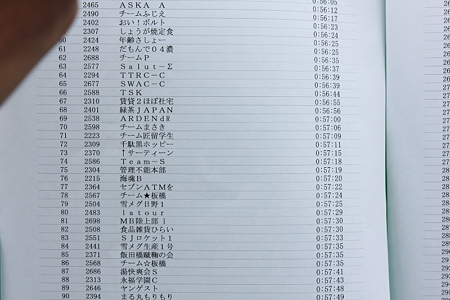 2465 ASKA A 0:56:05
2490 チームふじえ 0:56:12
2402 おい!ボルト 0:56:12
2307 しょうが焼定食 0:56:23
60 2424 年齢さしょー 0:56:25
61 2248 だもんで04濃 0:56:31
62 2688 チームP 0:56:35
63 2577 Salut-Σ 0:56:36
64 2294 TTRC-C 0:56:39
65 2677 SWAC-C 0:56:39
66 2588 TSK 0:56:44
67 2310 賃貸2ほぼ社宅 0:56:55
68 2401 緑茶JAPAN 0:56:56
69 2538 ARDENdR 0:57:00
70 2598 チームまさき 0:57:06
71 2223 チーム匠留学生 0:57:09
72 2309 千駄黒ホッピー 0:57:11
73 2370 Tサーティーン 0:57:15
74 2586 Team-S 0:57:18
75 2304 管理不能本部 0:57:19
76 2215 海魂B 0:57:20
77 2364 セブンATMを 0:57:22
78 2567 チーム★板橋 0:57:24
79 2504 雪メグ日野1 0:57:25
80 2483 latour 0:57:29
81 2698 MB陸上部1 0:57:30
82 2508 食品雑貨ひらい 0:57:30
83 2551 SJロケット1 0:57:33
84 2441 雪メグ生産1号 0:57:35
85 2371 飯田橋蹴鞠の会 0:57:35
86 2568 チーム☆板橋 0:57:35
87 2686 湯快爽会S 0:57:41
88 2313 永福学園C 0:57:43
89 2646 ヤングスト 0:57:48
90 2394 まる丸もりもり